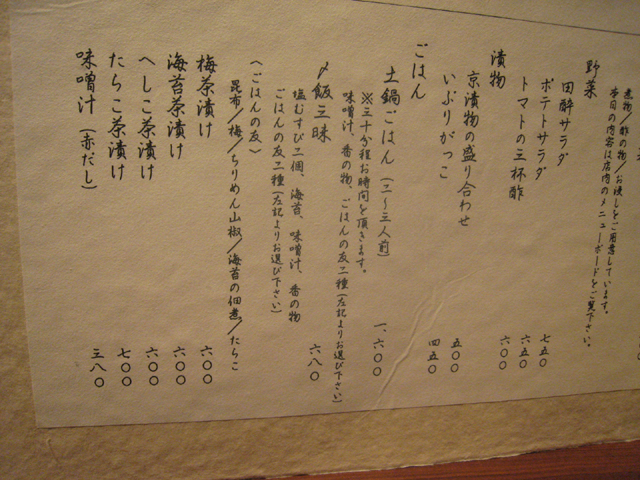 煮物/酢の物/お浸しをご用意しています。
本日の内容は店内のメニューボードをご覧下さい。
野菜
田酔サラダ 七五〇
ポテトサラダ 六五〇
トマトの三杯酢 六〇〇
漬物
京漬物の盛り合わせ 五〇〇
いぶりがっこ 四五〇
ごはん
土鍋ごはん(二〜三人前) 一、六〇〇
※三十分程お時間を頂きます。
味噌汁、香の物、ごはんの友二種(左記よりお選び下さい)
〆飯三昧 六八〇
塩むすび二個、海苔、味噌汁、香の物
ごはんの友二種(左記よりお選び下さい)
〈ごはんの友〉
昆布/梅/ちりめん山椒/海苔の佃煮/たらこ
梅茶漬け 六〇〇
海苔茶漬け 六〇〇
へしこ茶漬け 六〇〇
たらこ茶漬け 七〇〇
味噌汁(赤だし) 三八〇